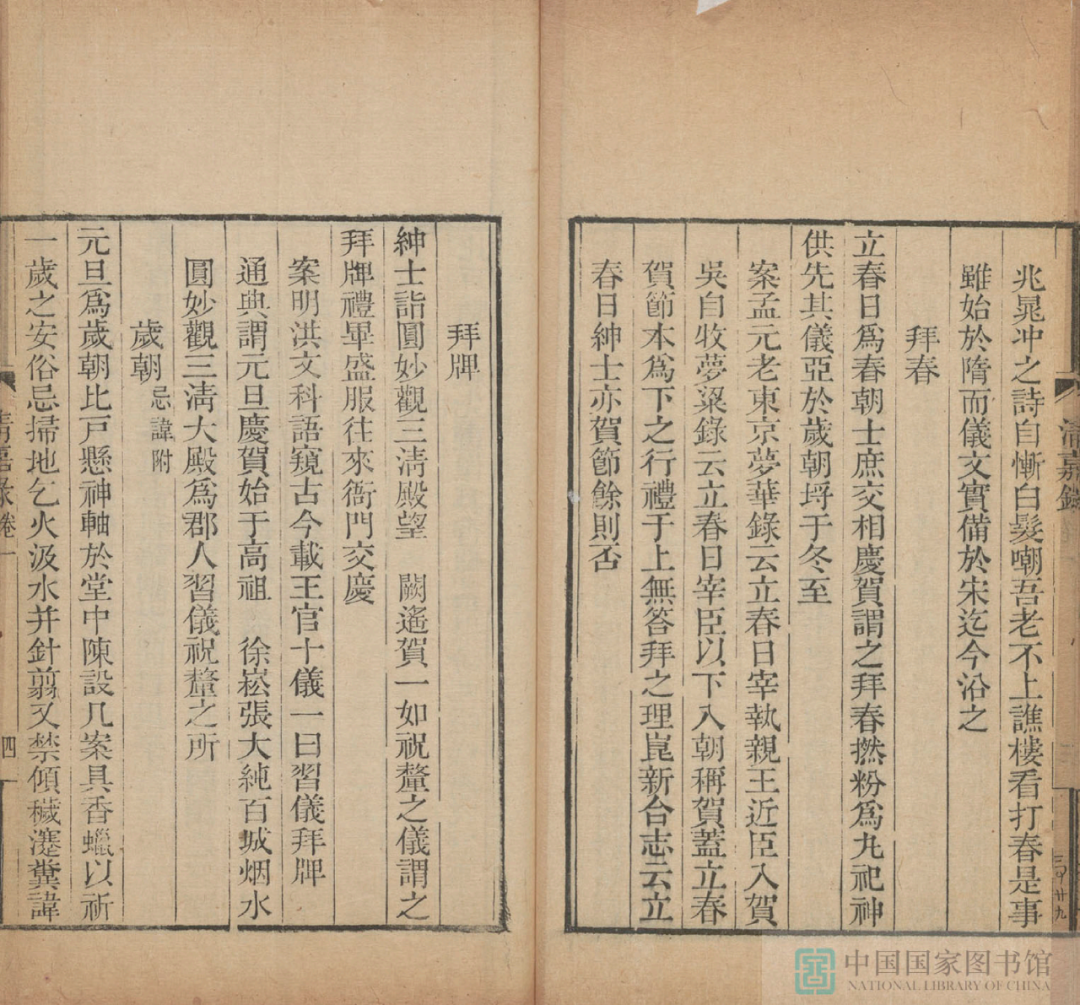 兆晁冲之詩自慚白髮嘲吾老不上譙樓看打春是事
雖始於隋而儀文實備於宋迄今沿之
拜春
立春日爲春朝士庶交相慶賀謂之拜春撚粉爲丸祀神
供先其儀亞於歲朝埒于冬至
案孟元老東京夢華錄云立春日宰執親王近臣入賀
吳自牧夢粱錄云立春日宰臣以下入朝稱賀蓋立春
賀節本爲下之行禮于上無答拜之理崑新合志云立
春日紳士亦賀節餘則否
拜牌
紳士詣圓妙觀三清殿望 闕遙賀一如祝釐之儀謂之
拜牌禮畢盛服往來衙門交慶
案明洪文科語窺古今載王官十儀一曰習儀拜牌
通典謂元旦慶賀始于高祖 徐崧張大純百城烟水
圓妙觀三清大殿爲郡人習儀祝釐之所
歲朝 忌諱附
元旦爲歲朝比戶懸神軸於堂中陳設几案具香蠟以祈
一歲之安俗忌掃地乞火汲水并針剪又禁傾穢瀽糞諱
清嘉錄
清嘉錄卷一
四
中国国家图书馆
NATIONAL LIBRARY OF CHINA